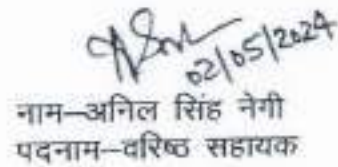 02/05/2024
नाम–अनिल सिंह नेगी
पदनाम–वरिष्ठ सहायक